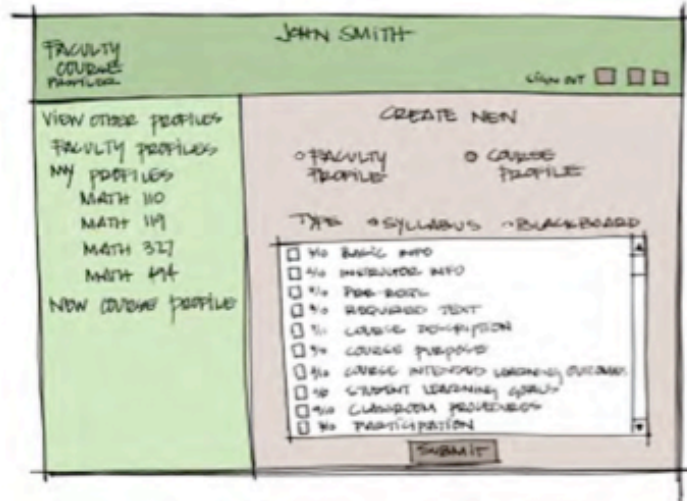 JOHN SMITH
FACULTY
COURSE
PROFILER
SIGN OUT
VIEW OTHER PROFILES
FACULTY PROFILES
MY PROFILES
MATH 110
MATH 119
MATH 327
MATH 494
NEW COURSE PROFILE
CREATE NEW
FACULTY PROFILE
COURSE PROFILE
TYPE SYLLABUS BLACKBOARD
BASIC INFO
INSTRUCTOR INFO
PRE-REQS.
REQUIRED TEXT
COURSE DESCRIPTION
COURSE PURPOSE
COURSE INTENDED LEARNING OUTCOMES
STUDENT LEARNING GOALS
CLASSROOM PROCEDURES
PARTICIPATION
SUBMIT